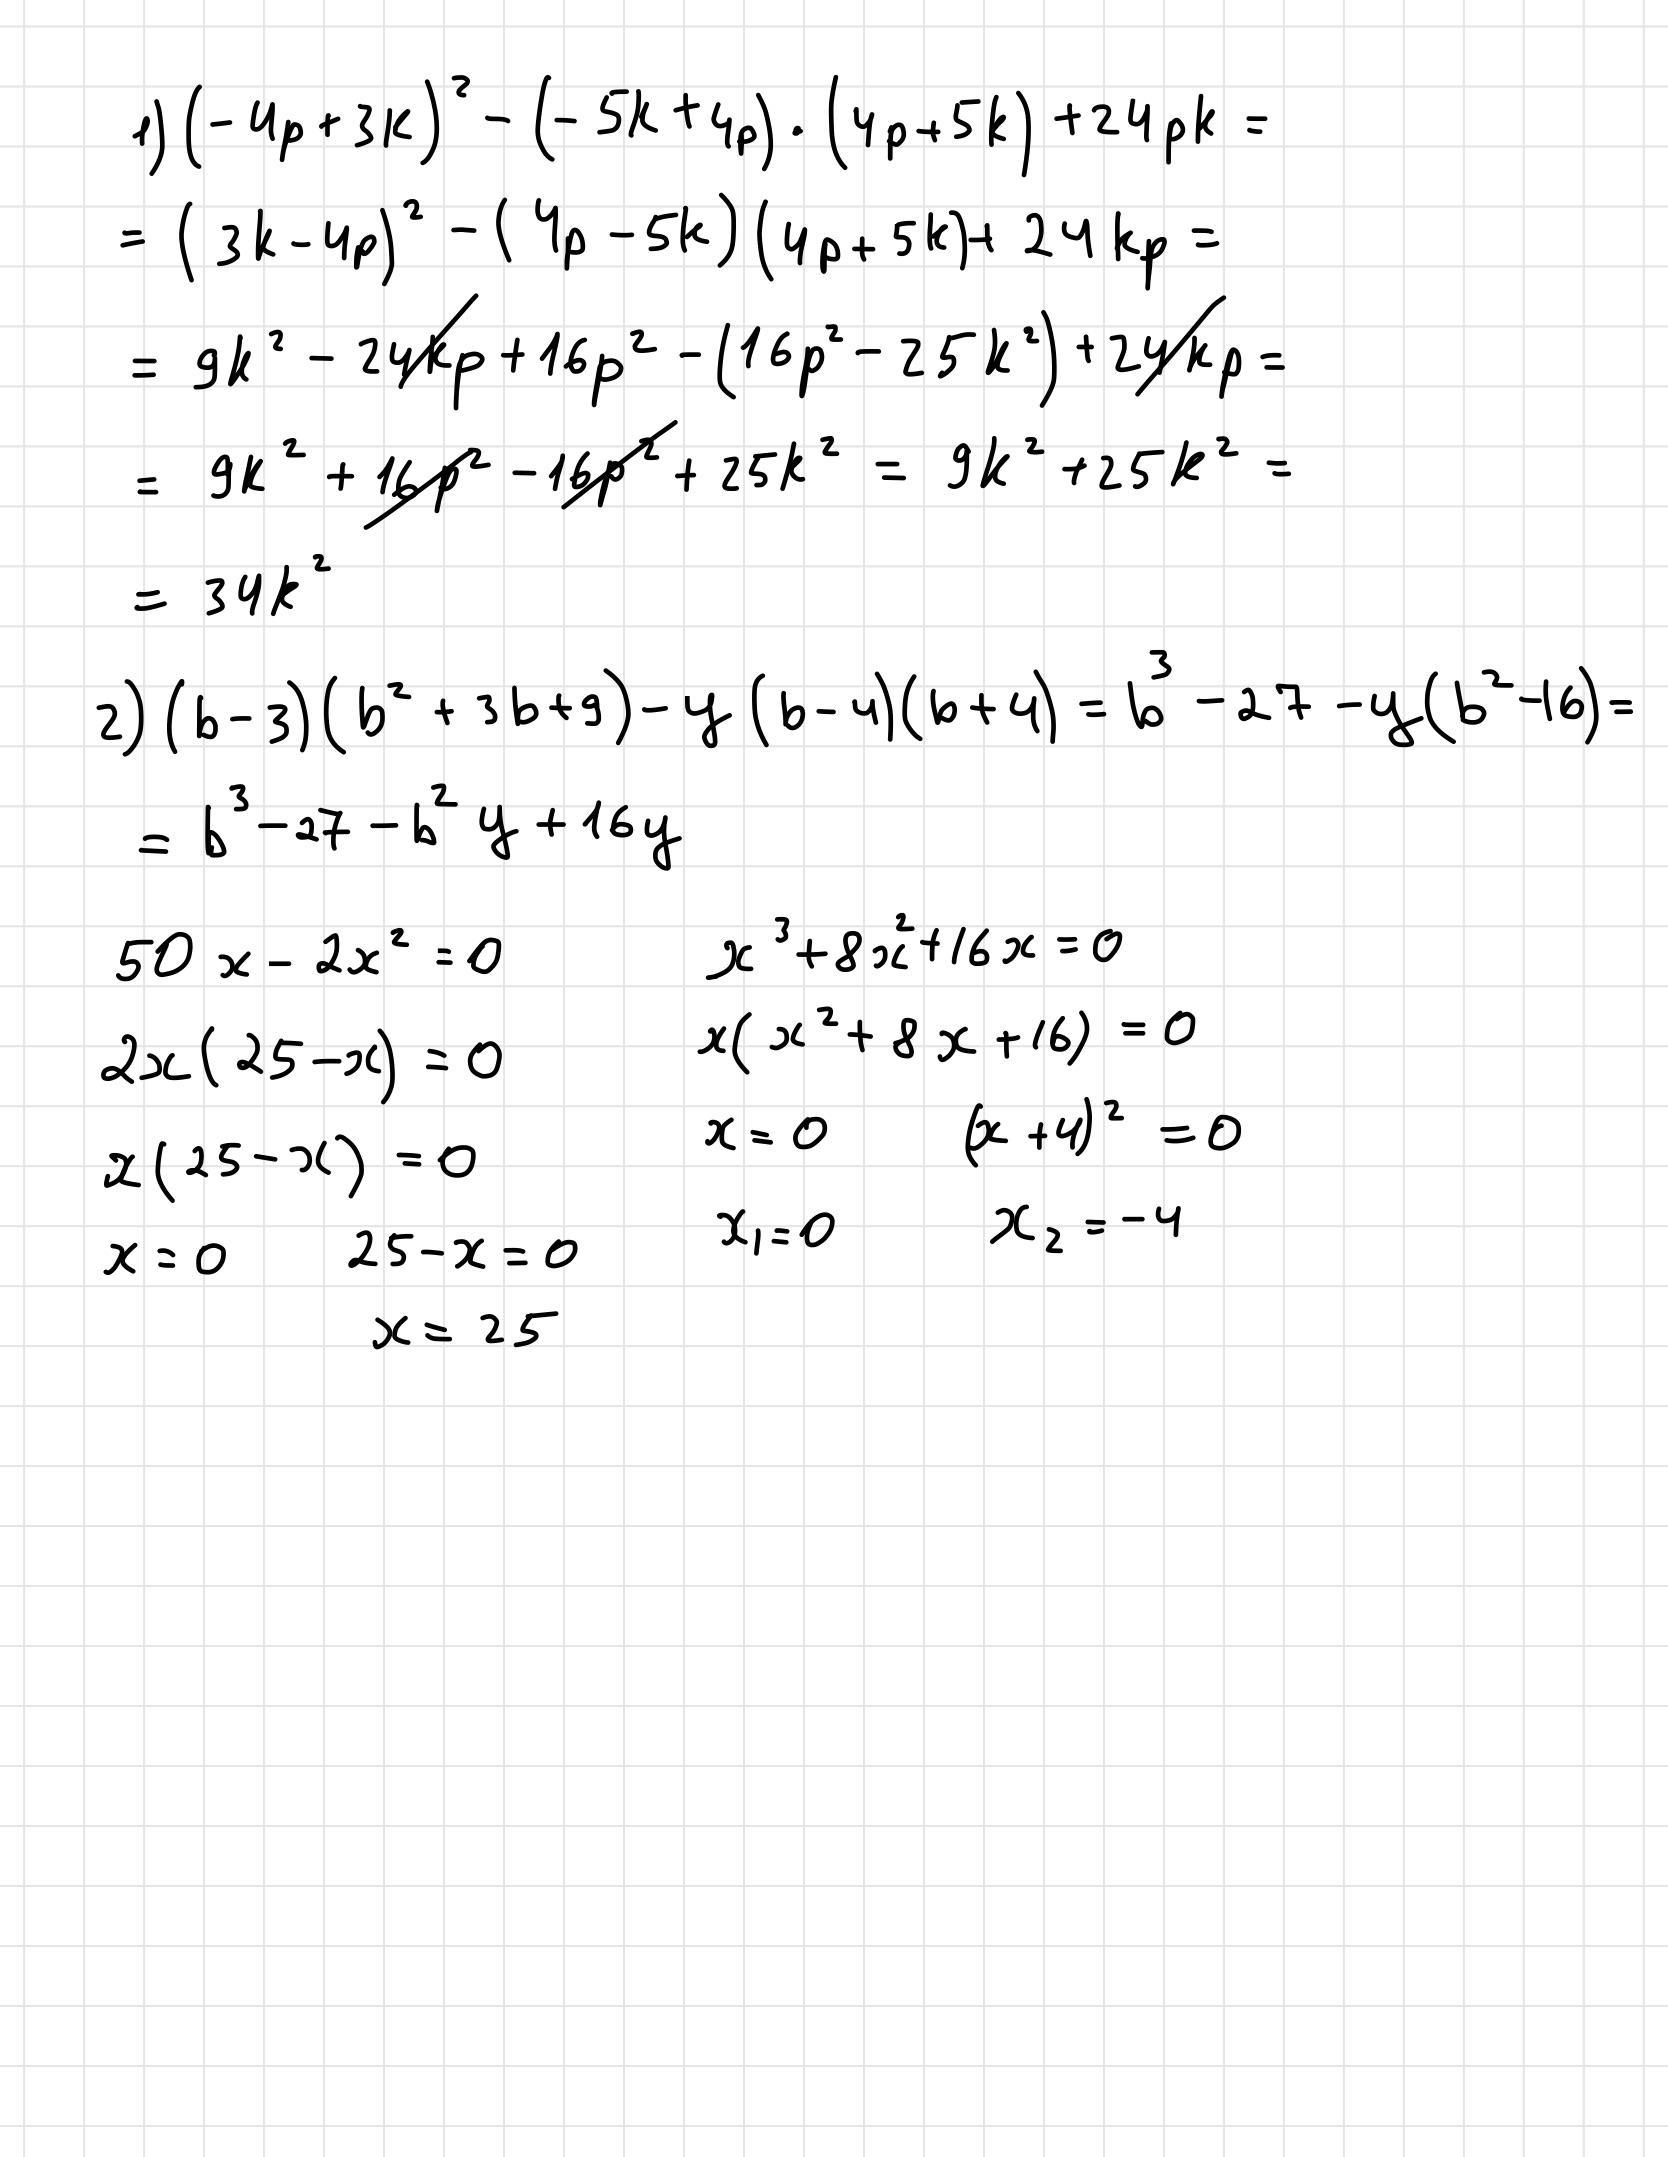 1) (-4p+3k)² - (-5k+4p)·(4p+5k)+24pk =
= (3k-4p)² - (4p-5k)(4p+5k)+24kp =
= 9k² - 24kp + 16p² - (16p² - 25k²) + 24kp =
= 9k² + 16p² - 16p² + 25k² = 9k² + 25k² =
= 34k²
2) (b-3)(b² + 3b+9) - y(b-4)(b+4) = b³ - 27 - y(b²-16) =
= b³ - 27 - b²y + 16y
50x - 2x² = 0
2x(25-x) = 0
x(25-x) = 0
x = 0 25-x = 0
x = 25
x³+8x²+16x = 0
x(x²+8x+16) = 0
x = 0 (x+4)² = 0
x₁=0 x₂ = -4